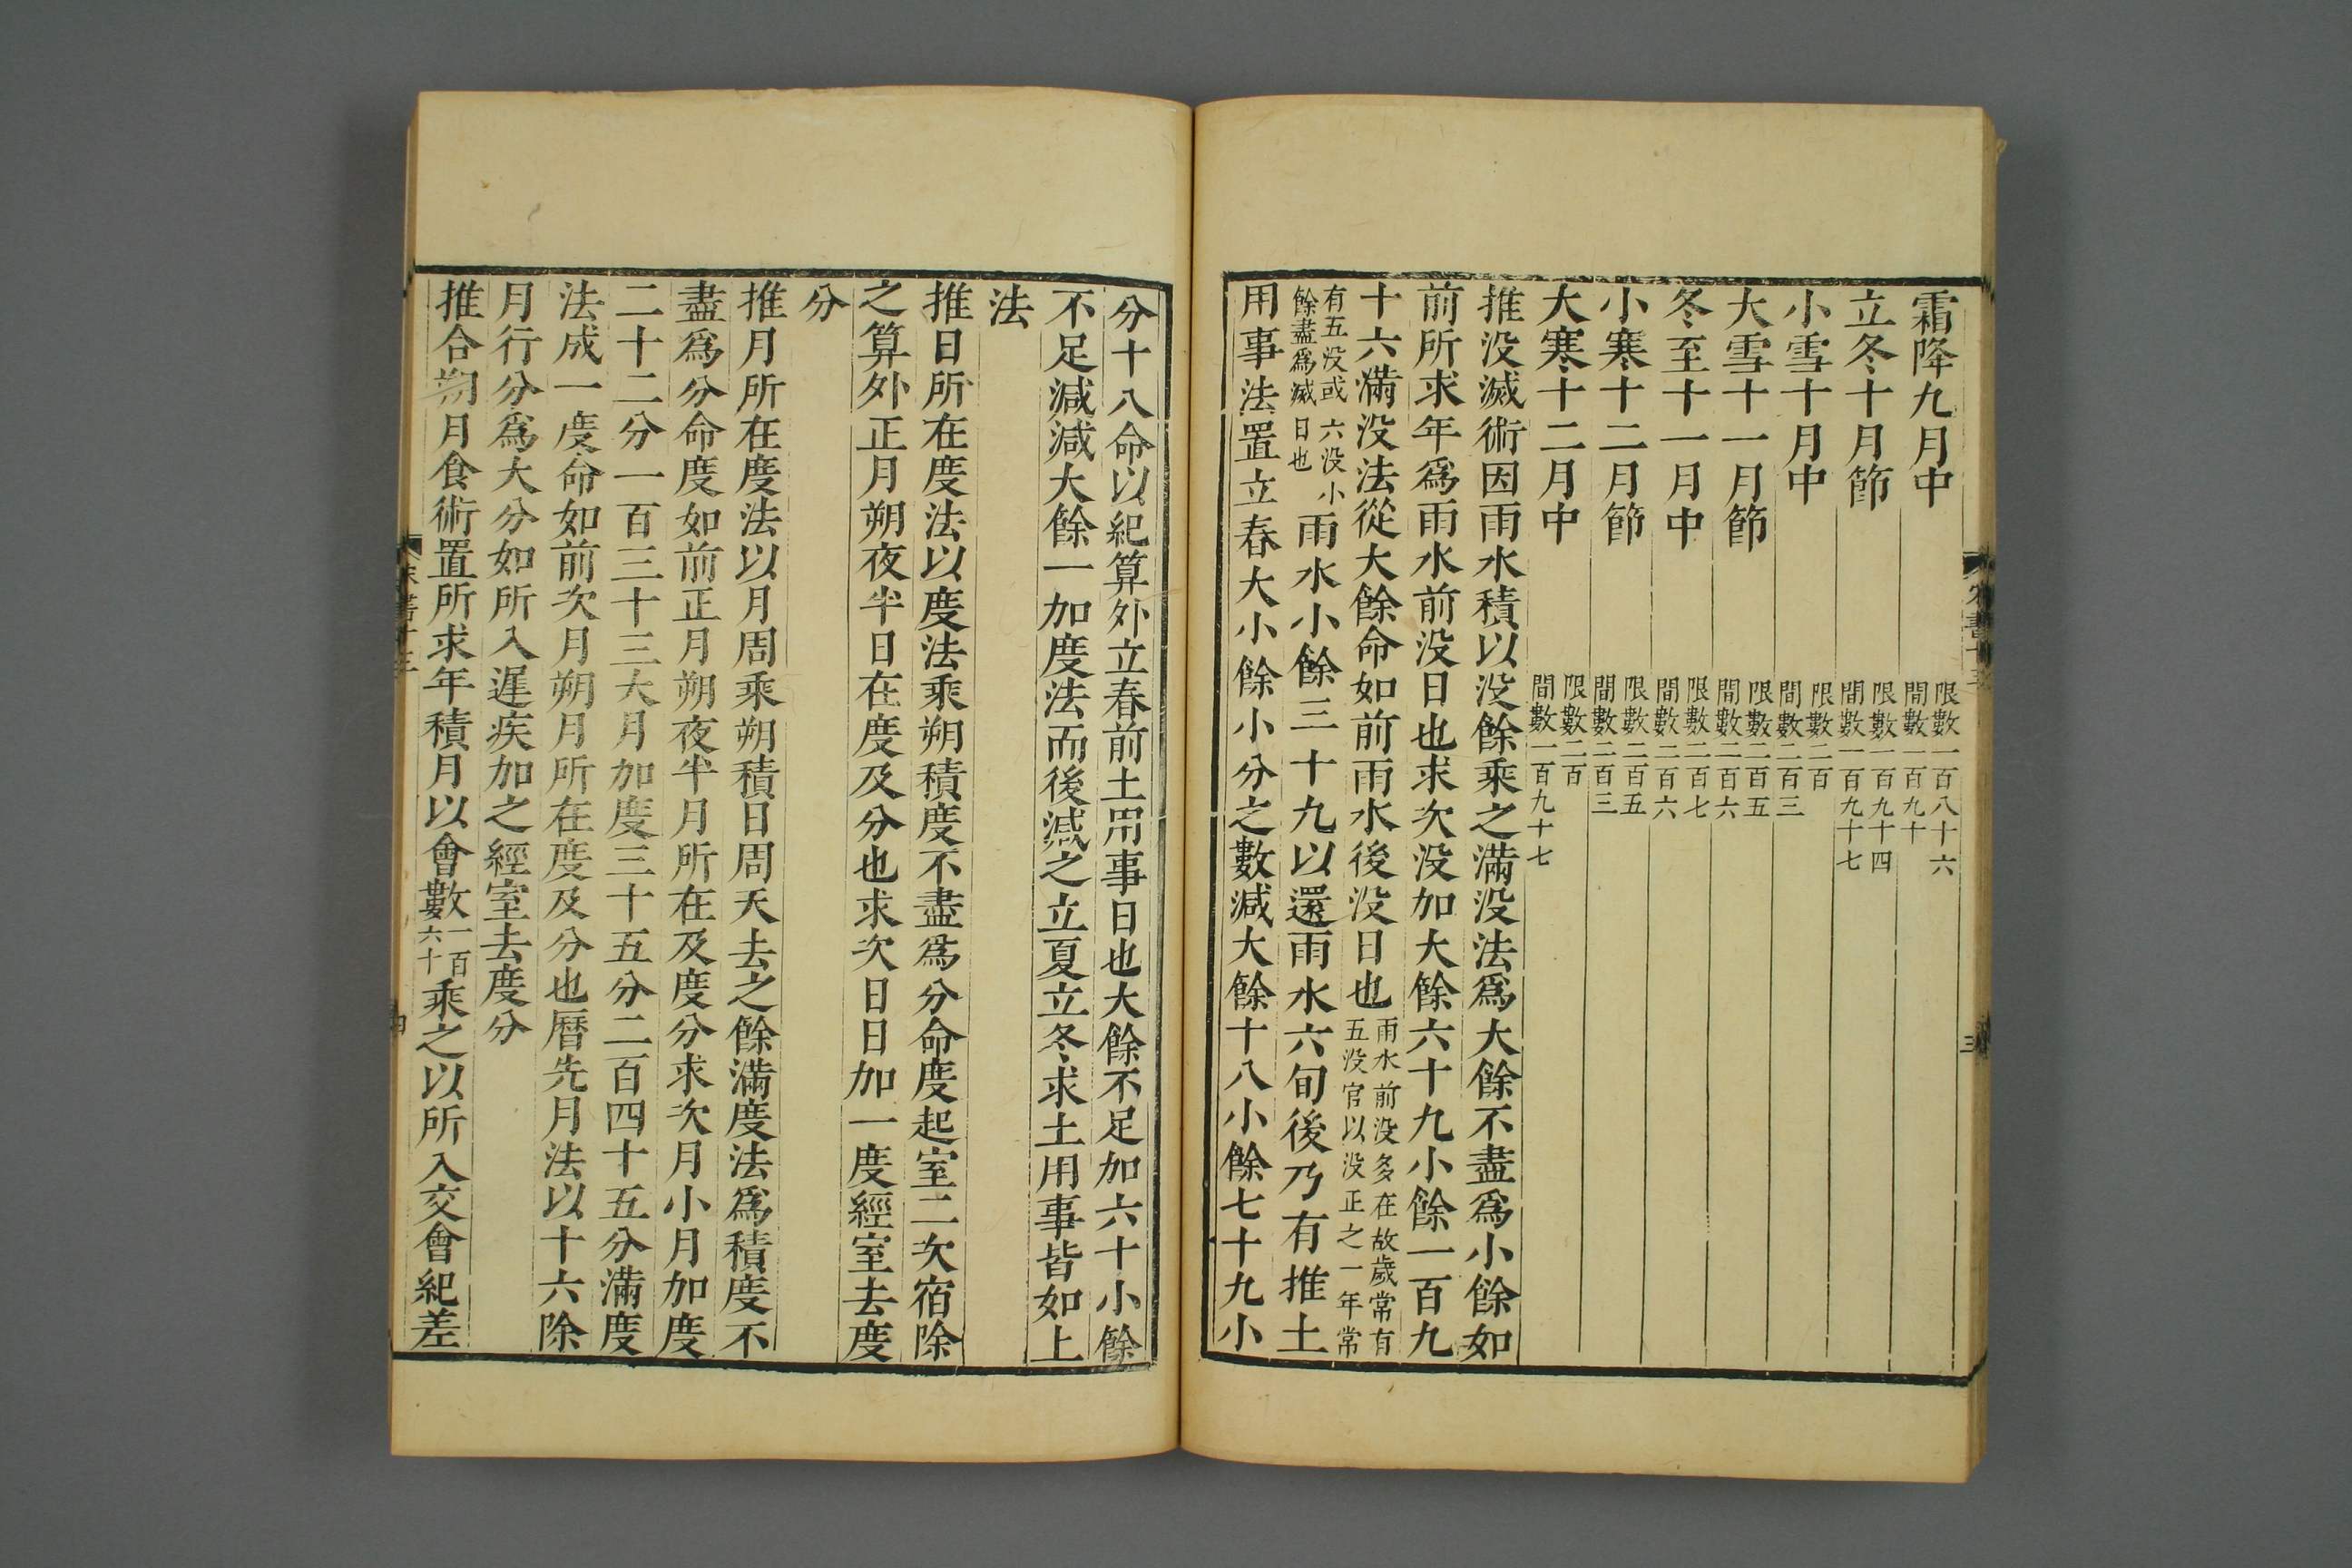 霜降九月中 限數一百八十六 間數一百九十
立冬十月節 限數一百九十四 間數一百九十七
小雪十月中 限數二百 間數二百三
大雪十一月節 限數二百五 間數二百六
冬至十一月中 限數二百七 間數二百六
小寒十二月節 限數二百五 間數二百三
大寒十二月中 限數二百 間數一百九十七
推没滅術因雨水積以没餘乘之滿没法爲大餘不盡爲小餘如
前所求年爲雨水前没日也求次没加大餘六十九小餘一百九
十六滿没法從大餘命如前雨水後没日也雨水前没多在故歲常有五没官以没正之一年常
有五没或六没小餘盡爲滅日也雨水小餘三十九以還雨水六旬後乃有推土
用事法置立春大小餘小分之數減大餘十八小餘七十九小
宋書十三
三
分十八命以紀算外立春前土用事日也大餘不足加六十小餘
不足減減大餘一加度法而後減之立夏立冬求土用事皆如上
法
推日所在度法以度法乘朔積度不盡爲分命度起室二次宿除
之算外正月朔夜半日在度及分也求次日日加一度經室去度
分
推月所在度法以月周乘朔積日周天去之餘滿度法爲積度不
盡爲分命度如前正月朔夜半月所在及度分求次月小月加度
二十二分一百三十三大月加度三十五分二百四十五分滿度
法成一度命如前次月朔月所在度及分也曆先月法以十六除
月行分爲大分如所入遲疾加之經室去度分
推合朔月食術置所求年積月以會數一百六十乘之以所入交會紀差
宋書十三
四